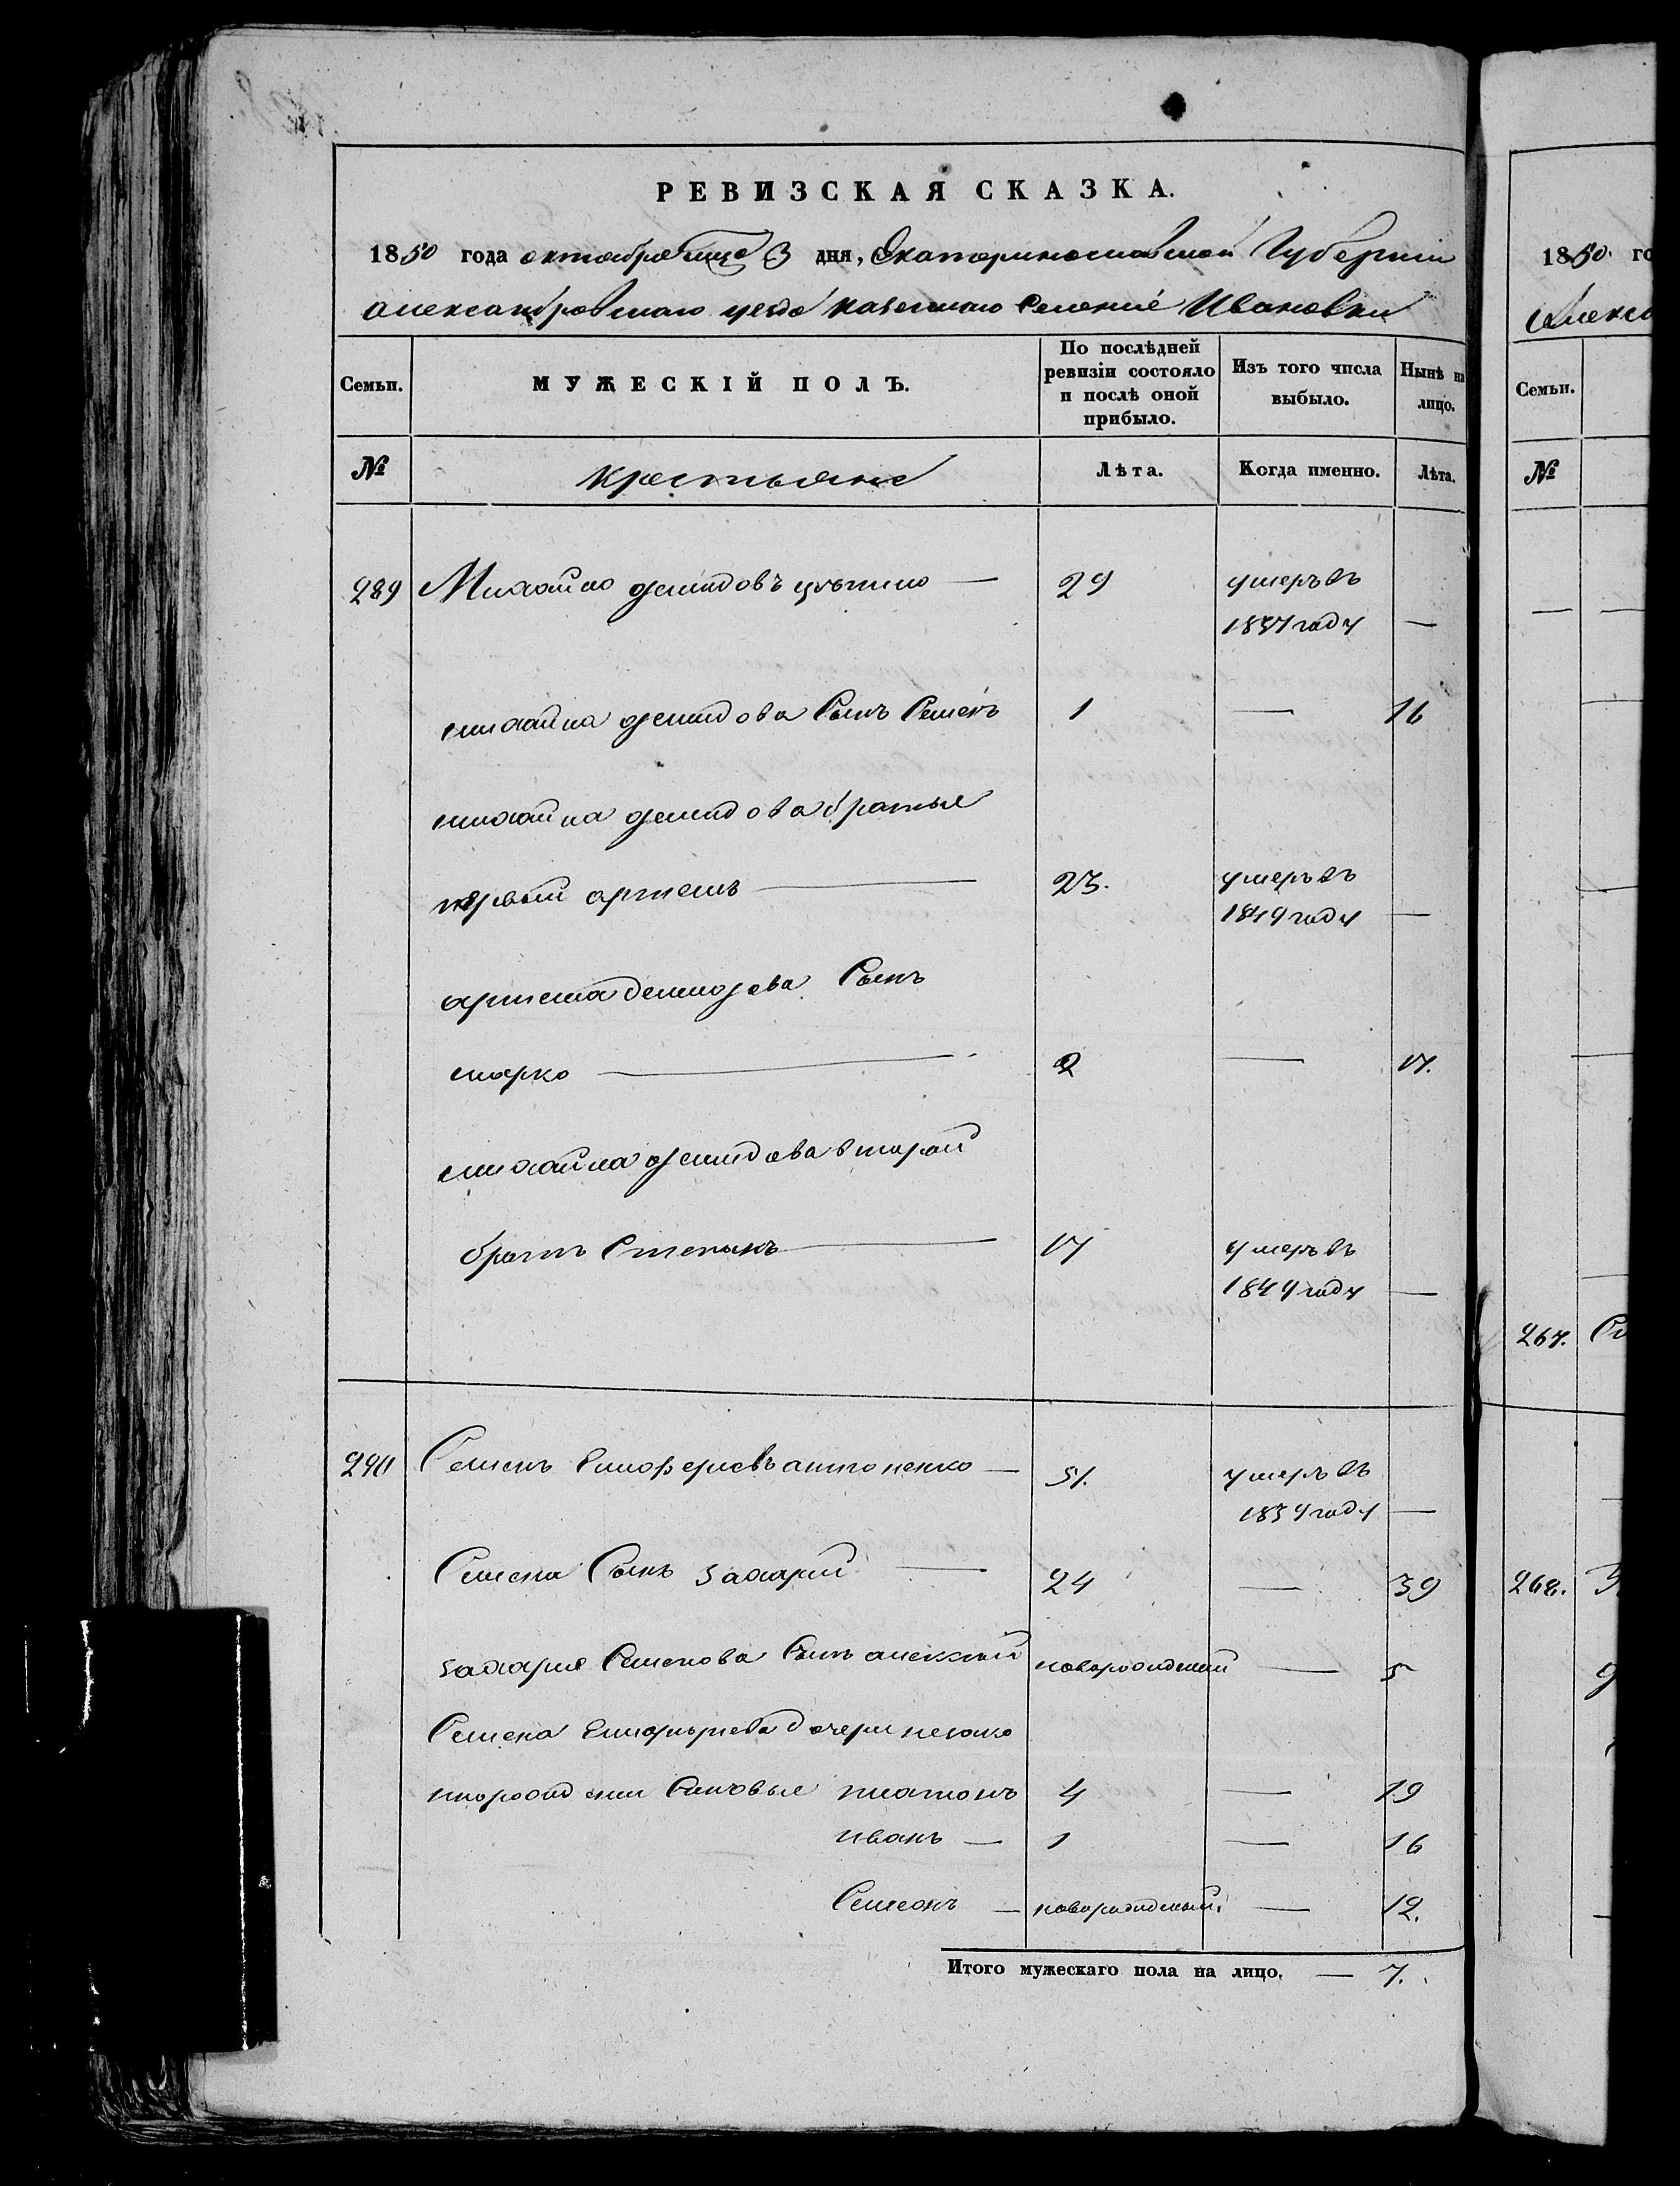 РЕВИЗСКАЯ СКАЗКА.
1850 года октября месяца 3 дня, Екатеринославской Губерніи
александровскаго уезда казеннаго Селенія Ивановки
Семьи.
МУЖЕСКІЙ ПОЛЪ.
По послѣдней ревизіи состояло и послѣ оной прибыло.
Изъ того числа выбыло.
Нынѣ на лицо.
№
крестьяне
Лѣта.
Когда именно.
Лѣта.
289 Михайло демидовъ — 29 умеръ въ
1837 году —
михайла демидова Сынъ Семенъ 1 — 16
михайла демидова братья
первый артемъ — 23. умеръ въ
1849 году —
артема демидова Сынъ
марко — 2 — 17.
михайла демидова второй
братъ Степанъ — 17 умеръ въ
1849 году —
290 Семенъ антоненко — 51. умеръ въ
1839 году —
Семена Сынъ захарий — 24 — 39
захария Семенова Сынъ алексей новорожденый — 5
Семена дочери незако
норожденые Сыновья платонъ 4 — 19
иванъ — 1 — 16
Симеонъ — новорожденый. — 12.
Итого мужескаго пола на лицо. — 7.
1850. го
Алекса
Семьи.
№
267.
268.